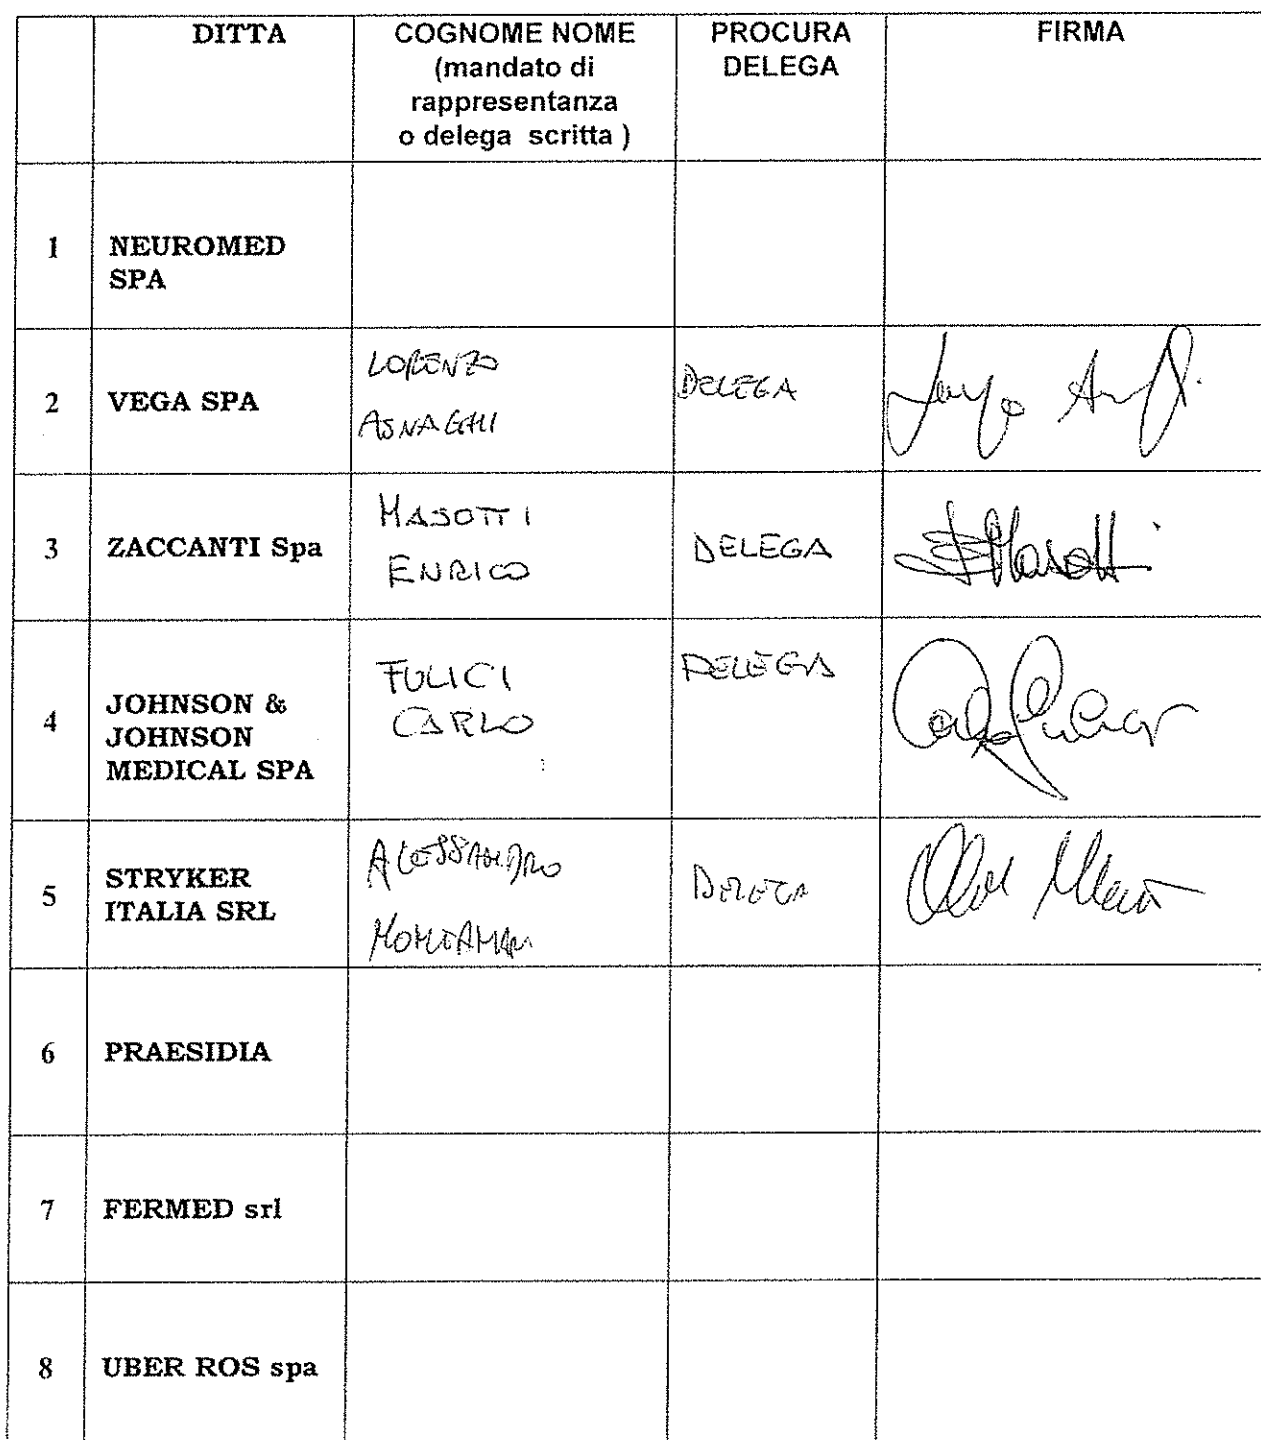 DITTA
COGNOME NOME
(mandato di
rappresentanza
o delega scritta )
PROCURA
DELEGA
FIRMA
1
NEUROMED
SPA
2
VEGA SPA
LORENZO
ASNAGHI
DELEGA
3
ZACCANTI Spa
MASOTTI
ENRICO
DELEGA
E Masotti
4
JOHNSON &
JOHNSON
MEDICAL SPA
FULICI
CARLO
DELEGA
5
STRYKER
ITALIA SRL
ALESSANDRO
DELEGA
6
PRAESIDIA
7
FERMED srl
8
UBER ROS spa